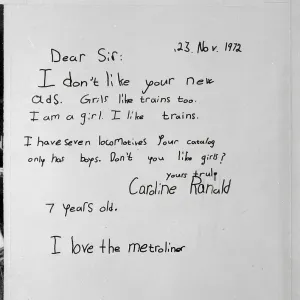 23. Nov. 1972
Dear Sir:
I don't like your new
ads. Grils like trains too.
I am a girl. I like trains.
I have seven locomotives Your catalog
only has boys. Don't you like girls?
yours truly
Caroline Ranald
7 years old.
I love the metroliner